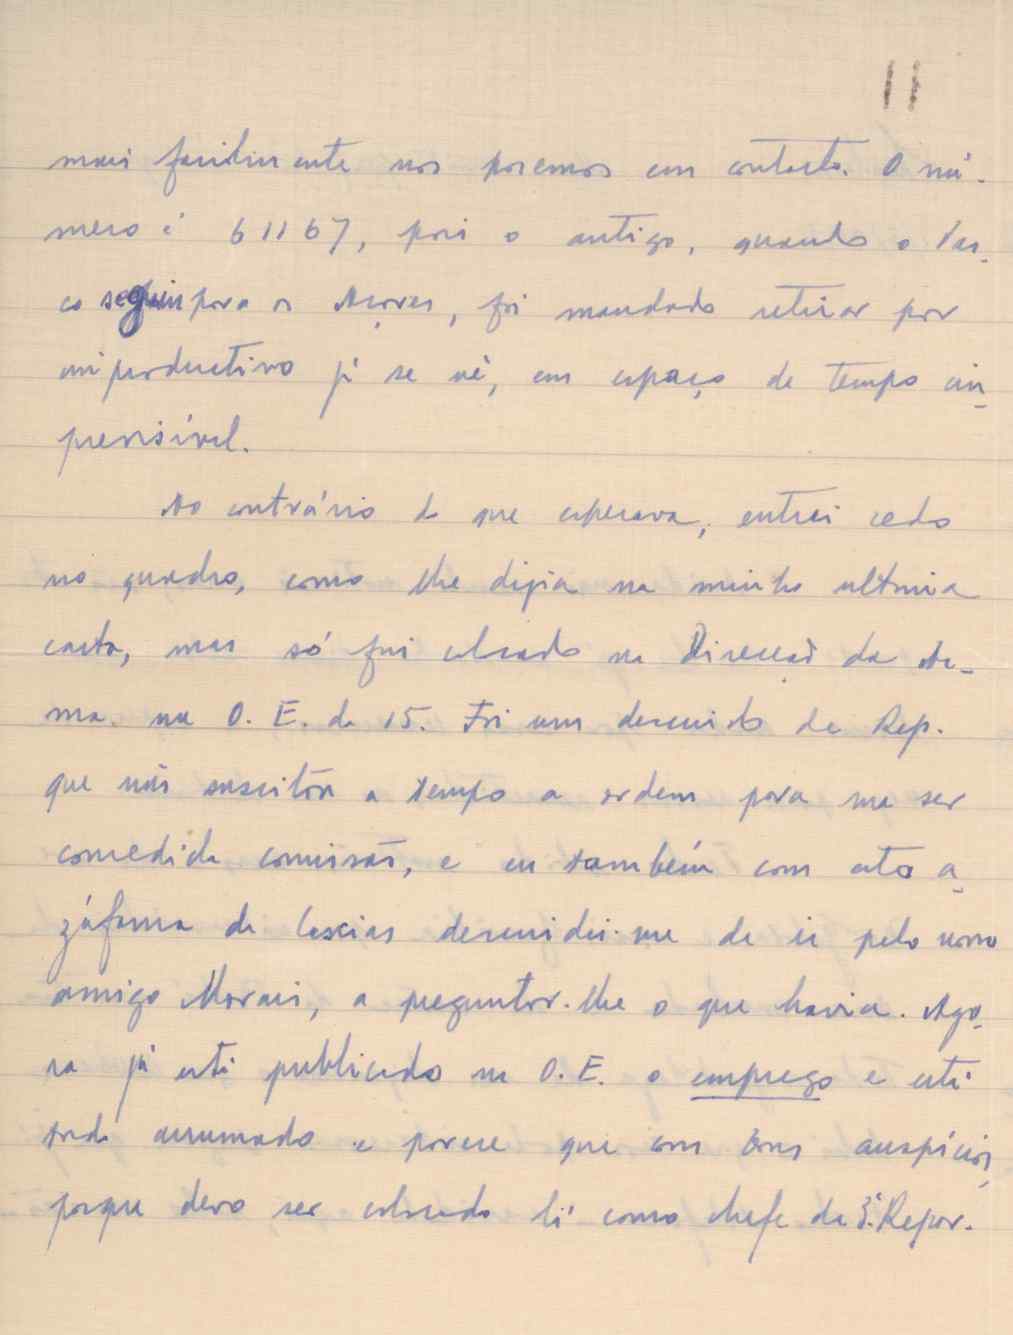 11
mais facilmente nos poremos em contacto. O nú-
mero é 61167, pois o antigo, quando o Vas-
co seguiu para os Açores, foi mandado retirar por
improductivo já se vê, em espaço de tempo im-
previsível.
Ao contrário do que esperava, entrei cedo
no quadro, como lhe dizia na minha ultima
carta, mas só fui colocado na Direcção da Ar-
ma na O. E. de 15. Foi um descuido da Rep.
que não suscitou a tempo a ordem para me ser
concedida comissão, e eu também com esta a-
záfama de descuidei-me de ir pelo nosso
amigo Morais, a preguntar-lhe o que havia. Ago-
ra já está publicado na O. E. o emprego e está
tudo arrumado e parece que com bons auspícios,
porque devo ser colocado lá como chefe da 3ª. Repar-